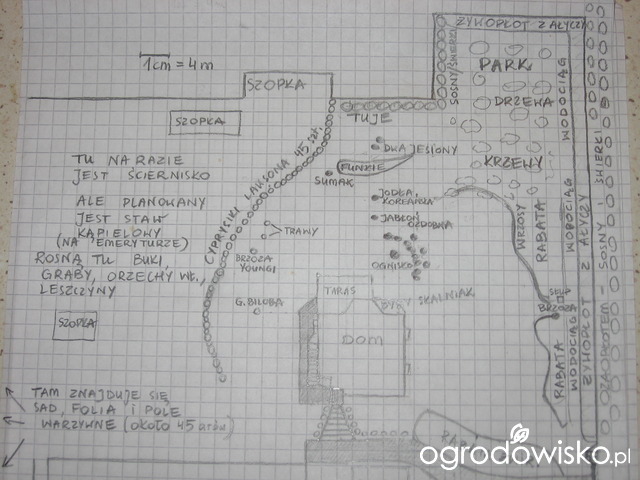 ŻYWOPŁOT Z AŁYCZY
1cm = 4m
SOSNY/ŚWIERKI
PARK
SZOPKA
DRZEWA
WODOCIĄG
TUJE
SZOPKA
DWA JESIONY
KRZEWY
FUNKIE
TU NA RAZIE
JEST ŚCIERNISKO
SUMAK
JODŁA
KOREAŃSKA
ALE PLANOWANY
JEST STAW
KĄPIELOWY
(NA EMERYTURZE)
CYPRYSIKI LAWSONA 45 szt.
JABŁOŃ
OZDOBNA
TRAWY
WRZOSY
RABATA
WODOCIĄG
ROSNĄ TU BUKI,
GRABY, ORZECHY WŁ.,
LESZCZYNY
BRZOZA
YOUNGI
OGNISKO
TARAS
SKALNIAK
G. BILOBA
BRZOZA
SZOPKA
DOM
RABATA
WODOCIĄG
ŻYWOPŁOT Z AŁYCZY
ZA PŁOTEM - SOSNY I ŚWIERKI
TAM ZNAJDUJE SIĘ
SAD, FOLIA I POLE
WARZYWNE (około 45 arów)
ogrodowisko.pl